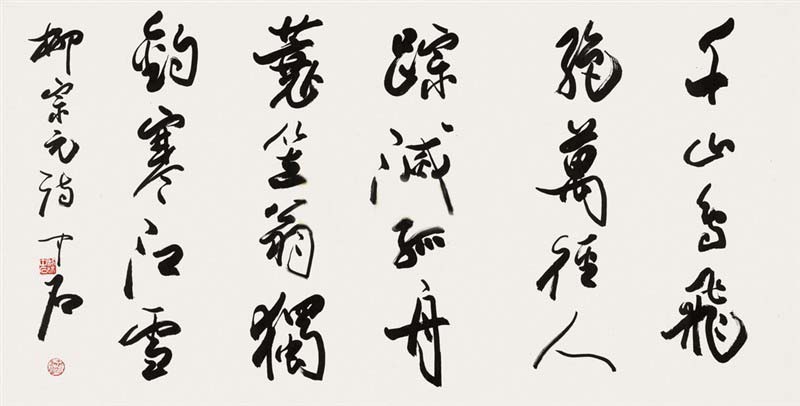 千山鸟飛
絶萬徑人
踪滅孤舟
蓑笠翁獨
釣寒江雪
柳宗元诗 中石